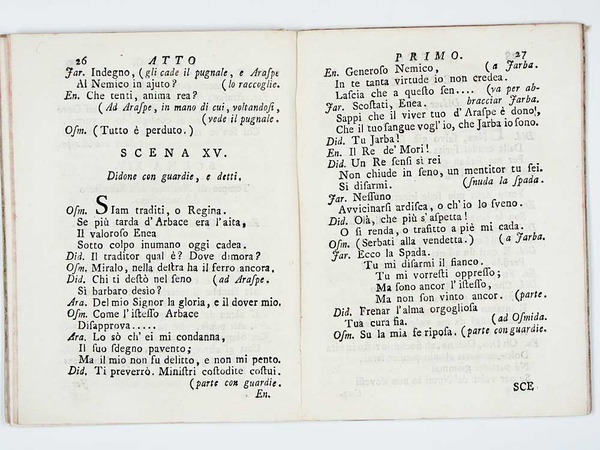 26 ATTO
Jar. Indegno, (gli cade il pugnale, e Araſpe
Al Nemico in ajuto? (lo raccoglie.
En. Che tenti, anima rea?
(Ad Araſpe, in mano di cui, voltandoſi,
(vede il pugnale.
Oſm. (Tutto è perduto.)
SCENA XV.
Didone con guardie, e detti.
Oſm. SIam traditi, o Regina.
Se più tarda d'Arbace era l'aita,
Il valoroſo Enea
Sotto colpo inumano oggi cadea.
Did. Il traditor qual è? Dove dimora?
Oſm. Miralo, nella deſtra ha il ferro ancora.
Did. Chi ti deſtò nel ſeno (ad Araſpe.
Sì barbaro desìo?
Ara. Del mio Signor la gloria, e il dover mio.
Oſm. Come l'iſteſſo Arbace
Diſapprova.....
Ara. Lo sò ch' ei mi condanna,
Il ſuo ſdegno pavento;
Ma il mio non fu delitto, e non mi pento.
Did. Ti preverrò. Miniſtri cuſtodite coſtui.
(parte con guardie.
En.
PRIMO. 27
En. Generoſo Nemico, (a Jarba.
In te tanta virtude io non credea.
Laſcia che a queſto ſen.... (va per ab-
Jar. Scoſtati, Enea. bracciar Jarba.
Sappi che il viver tuo d'Araſpe è dono!,
Che il tuo ſangue vogl'io, che Jarba io ſono.
Did. Tu Jarba!
En. Il Re de' Mori!
Did. Un Re ſenſi sì rei
Non chiude in ſeno, un mentitor tu ſei.
Si diſarmi. (ſnuda la ſpada.
Jar. Neſſuno
Avvicinarſi ardiſca, o ch' io lo ſveno.
Did. Olà, che più s'aſpetta!
O ſi renda, o trafitto a piè mi cada.
Oſm. (Serbati alla vendetta.) (a Jarba.
Jar. Ecco la Spada.
Tu mi diſarmi il fianco.
Tu mi vorreſti oppreſſo;
Ma ſono ancor l'iſteſſo,
Ma non ſon vinto ancor. (parte.
Did. Frenar l'alma orgoglioſa
Tua cura ſia. (ad Oſmida.
Oſm. Su la mia fe ripoſa. (parte con guardie.
SCE